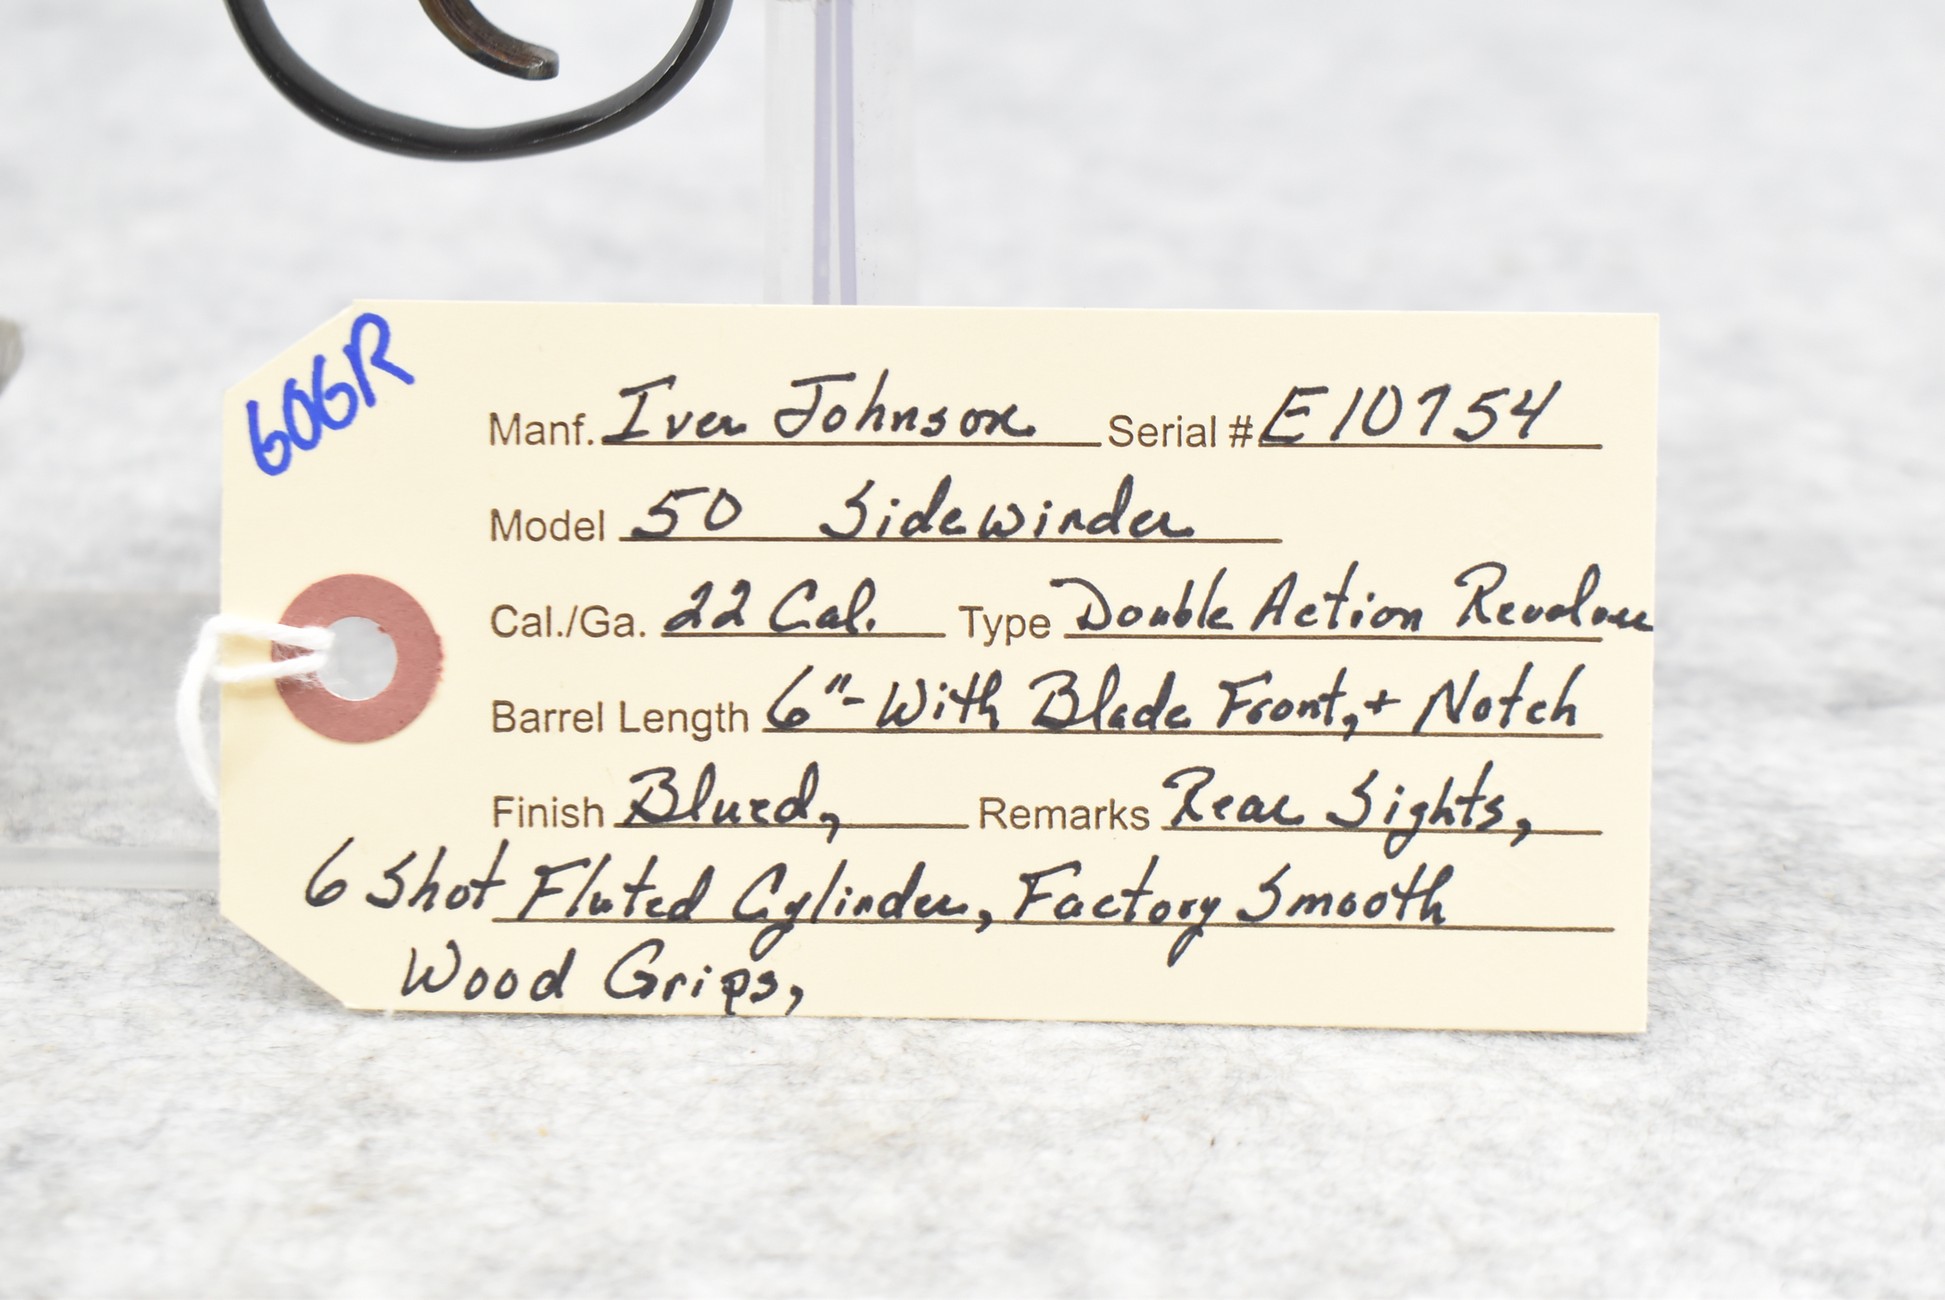 606R
Manf. Iver Johnson Serial # E10754
Model 50 Sidewinder
Cal./Ga. 22 Cal. Type Double Action Revolver
Barrel Length 6"- With Blade Front, + Notch
Finish Blued, Remarks Rear Sights,
6 Shot Fluted Cylinder, Factory Smooth
Wood Grips,